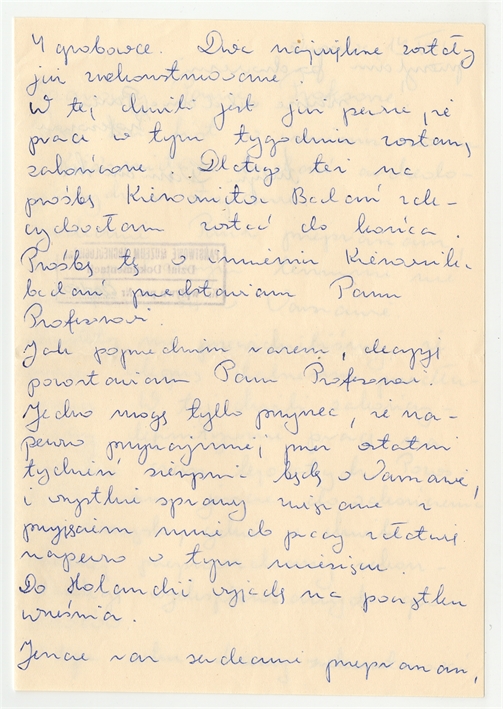 4 grobowce. Dwa największe zostały
już zrekonstruowane.
W tej chwili jest już pewne, że
prace w tym tygodniu zostaną
zakończone. Dlatego też na
prośbę Kierownika Badań zde-
cydowałam zostać do końca.
Prośbę tę w imieniu Kierownika
badań przedstawiam Panu
Profesorowi.
Jak poprzednim razem, decyzję
pozostawiam Panu Profesorowi.
Jedno mogę tylko przyrzec, że na-
pewno przynajmniej przez ostatni
tydzień sierpnia będę w Warszawie,
i wszystkie sprawy związane z
przyjęciem mnie do pracy załatwię
napewno w tym miesiącu.
Do Holandii wyjadę na początku
września.
Jeszcze raz serdecznie przepraszam,